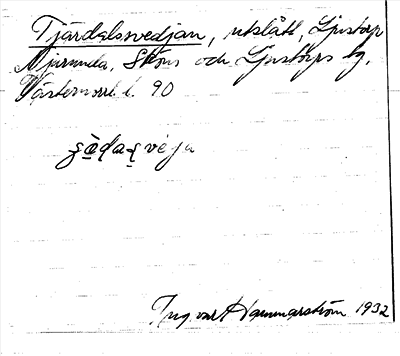 Tjärdalssvedjan, utslått, Ljustorp
Njurunda, Sköns och Ljustorps tg.
Västernorrl. l. 90
Ingvar Hammarström 1932